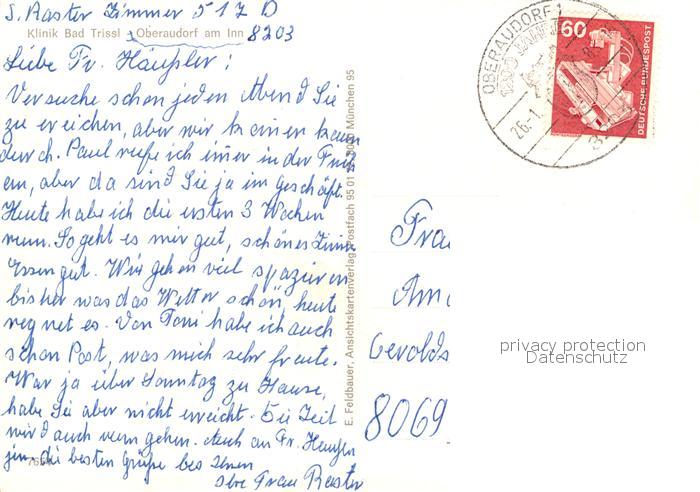 S. Raster Zimmer 517 D
Klinik Bad Trissl Oberaudorf am Inn 8203
Liebe Fr. Häußler!
Versuche schon jeden Abend Sie
zu ereichen, aber wir kommen kaum
durch. Paul rufe ich immer in der Früh
an, aber da sind Sie ja im Geschäft.
Heute habe ich die ersten 3 Wochen
rum. So geht es mir gut, schönes Zimmer
Essen gut. Wir gehen viel spazieren
bisher was das Wetter schön, heute
regnet es. Von Toni habe ich auch
schon Post, was mich sehr freute.
War ja über Sonntag zu Hause,
habe Sie aber nicht erreicht. Die Zeit
wird auch vergehen. Auch an Fr.
die besten Grüße bes
Ihre Frau Raster
E. Feldbauer, Ansichtskartenverlag, Postfach 95 01 8000 München 95
Frau
Gerolds
8069
OBERAUDORF 1
26.-1.
60
DEUTSCHE BUNDESPOST
privacy protection
Datenschutz